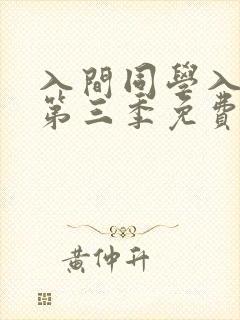 入間同學入
第三季免費
黃仲升